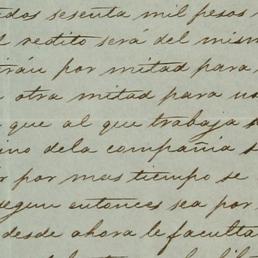 sesenta mil pesos
redito será del mism
por mitad para
otra mitad para us
que al que trabaja
dela compañia s
por mas tiempo se
segun entonces sea por
desde ahora le faculta